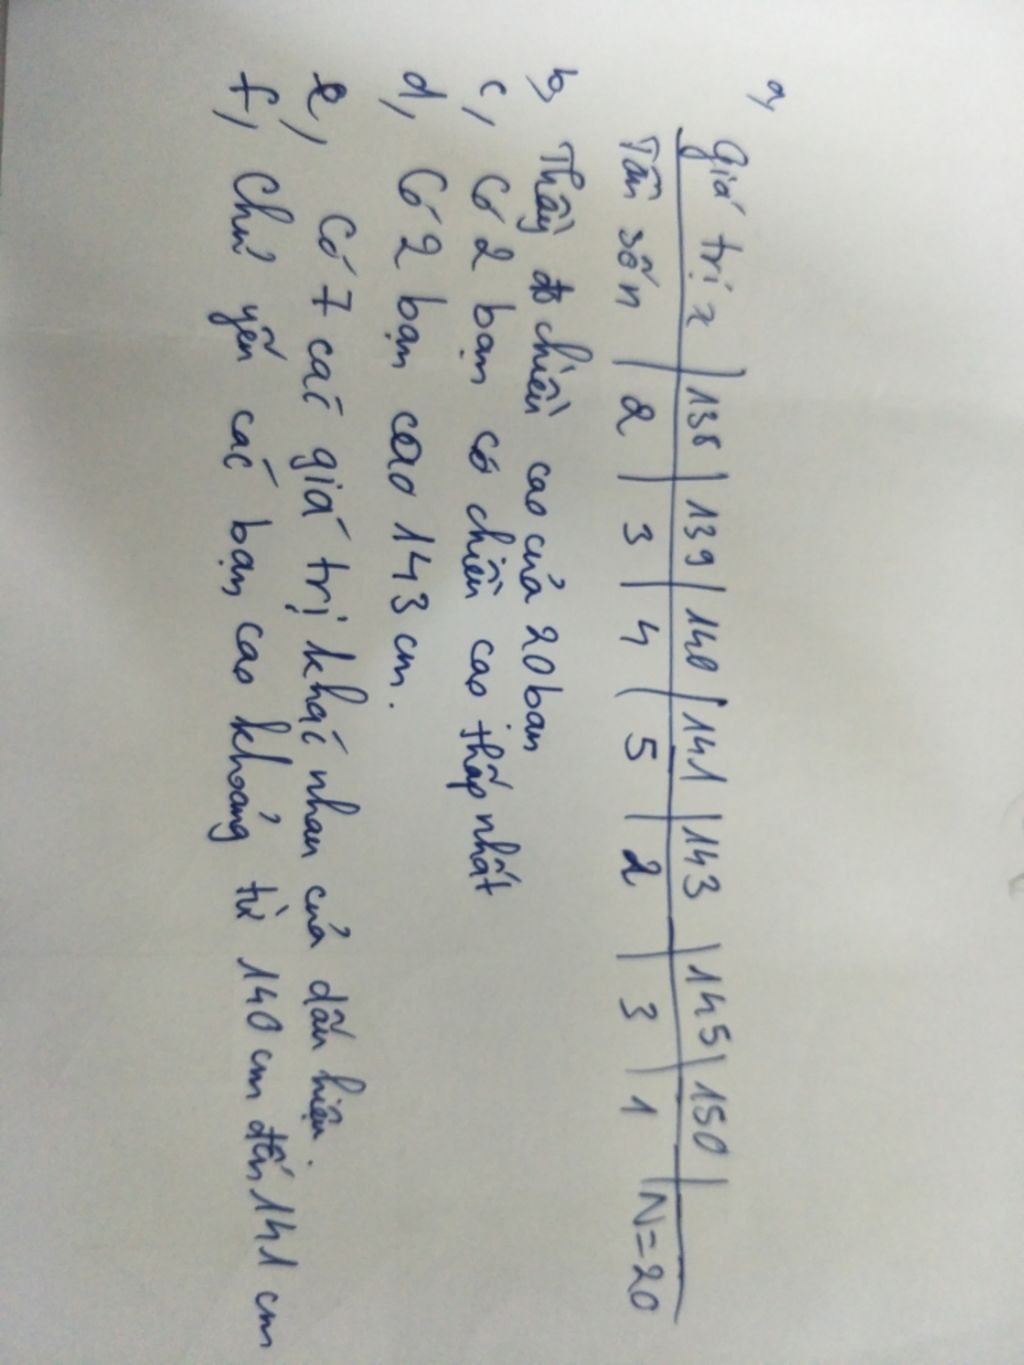 a,
Giá trị x | 138 | 139 | 140 | 141 | 143 | 145 | 150 |
Tần số n | 2 | 3 | 4 | 5 | 2 | 3 | 1 | N=20
b, Thầy đo chiều cao của 20 bạn
c, Có 2 bạn có chiều cao thấp nhất
d, Có 2 bạn cao 143 cm.
e, Có 7 các giá trị khác nhau của dấu hiệu.
f, Chủ yếu các bạn cao khoảng từ 140 cm đến 141 cm